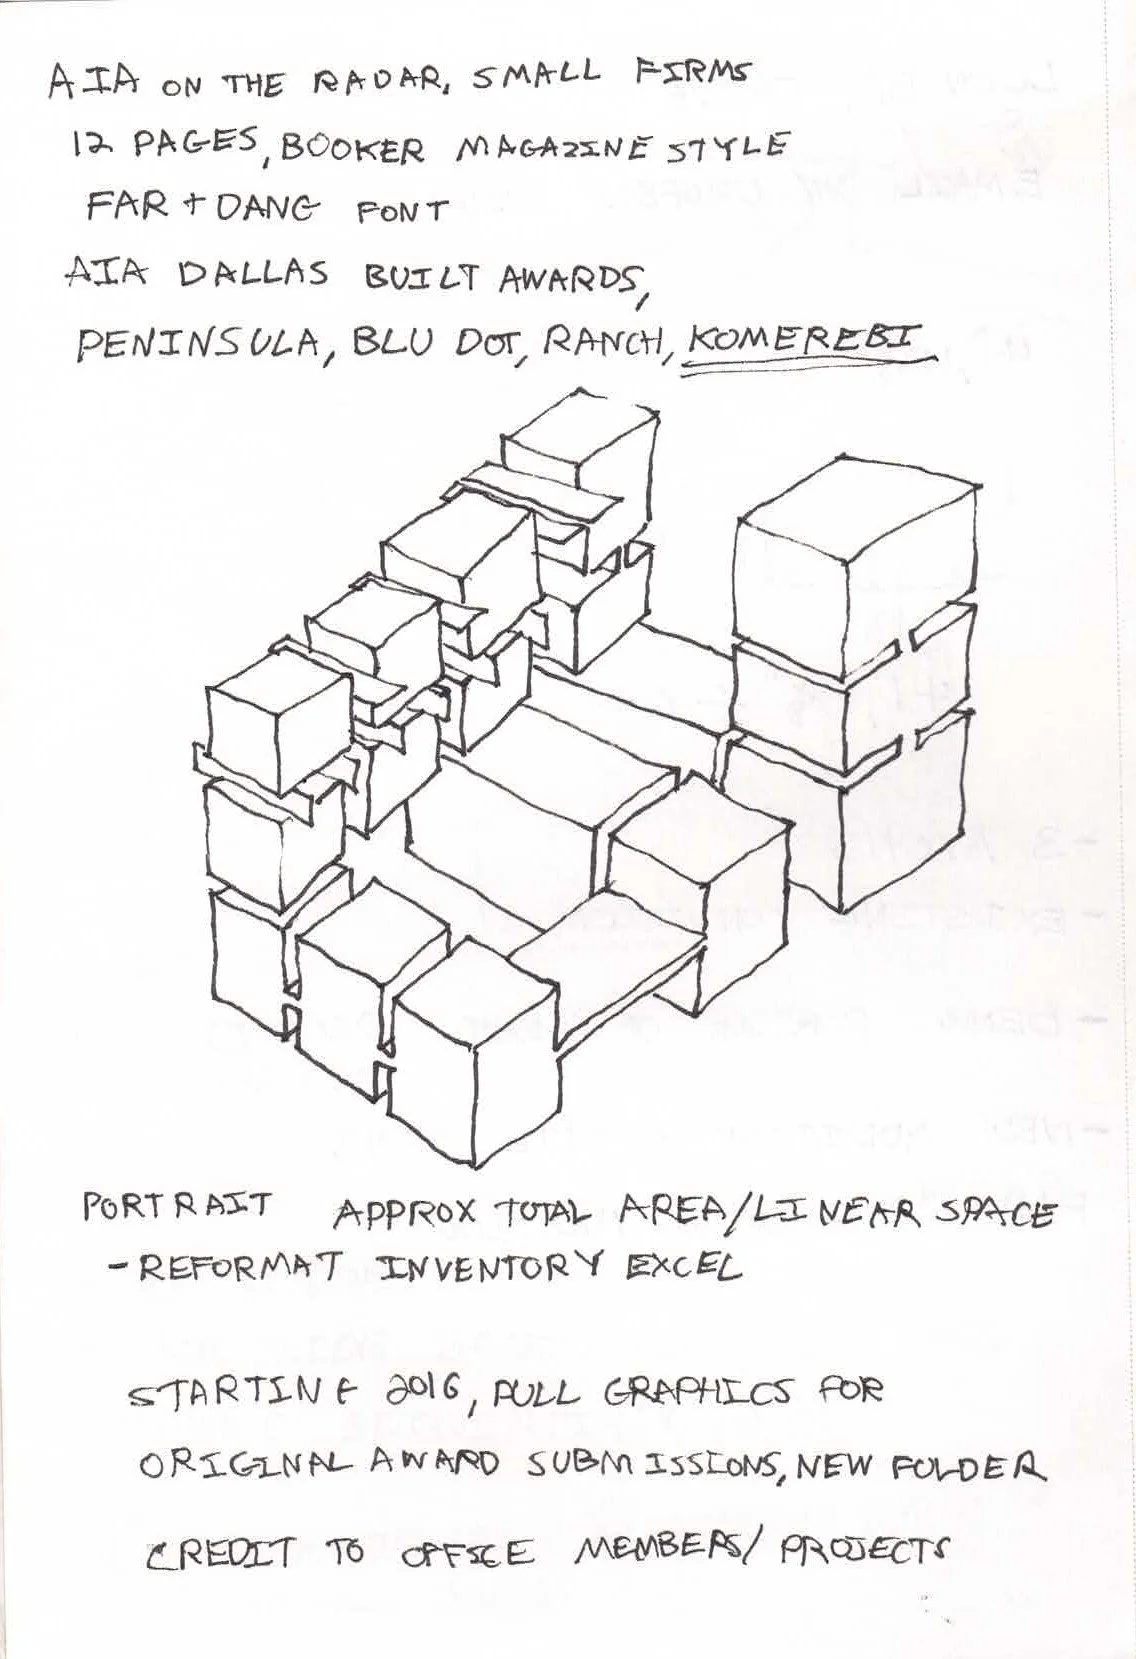 AIA ON THE RADAR, SMALL FIRMS
12 PAGES, BOOKER MAGAZINE STYLE
FAR + DANG FONT
AIA DALLAS BUILT AWARDS,
PENINSULA, BLU DOT, RANCH, KOMEREBI
PORTRAIT APPROX TOTAL AREA/LINEAR SPACE
- REFORMAT INVENTORY EXCEL
STARTING 2016, PULL GRAPHICS FOR
ORIGINAL AWARD SUBMISSIONS, NEW FOLDER
CREDIT TO OFFICE MEMBERS/ PROJECTS